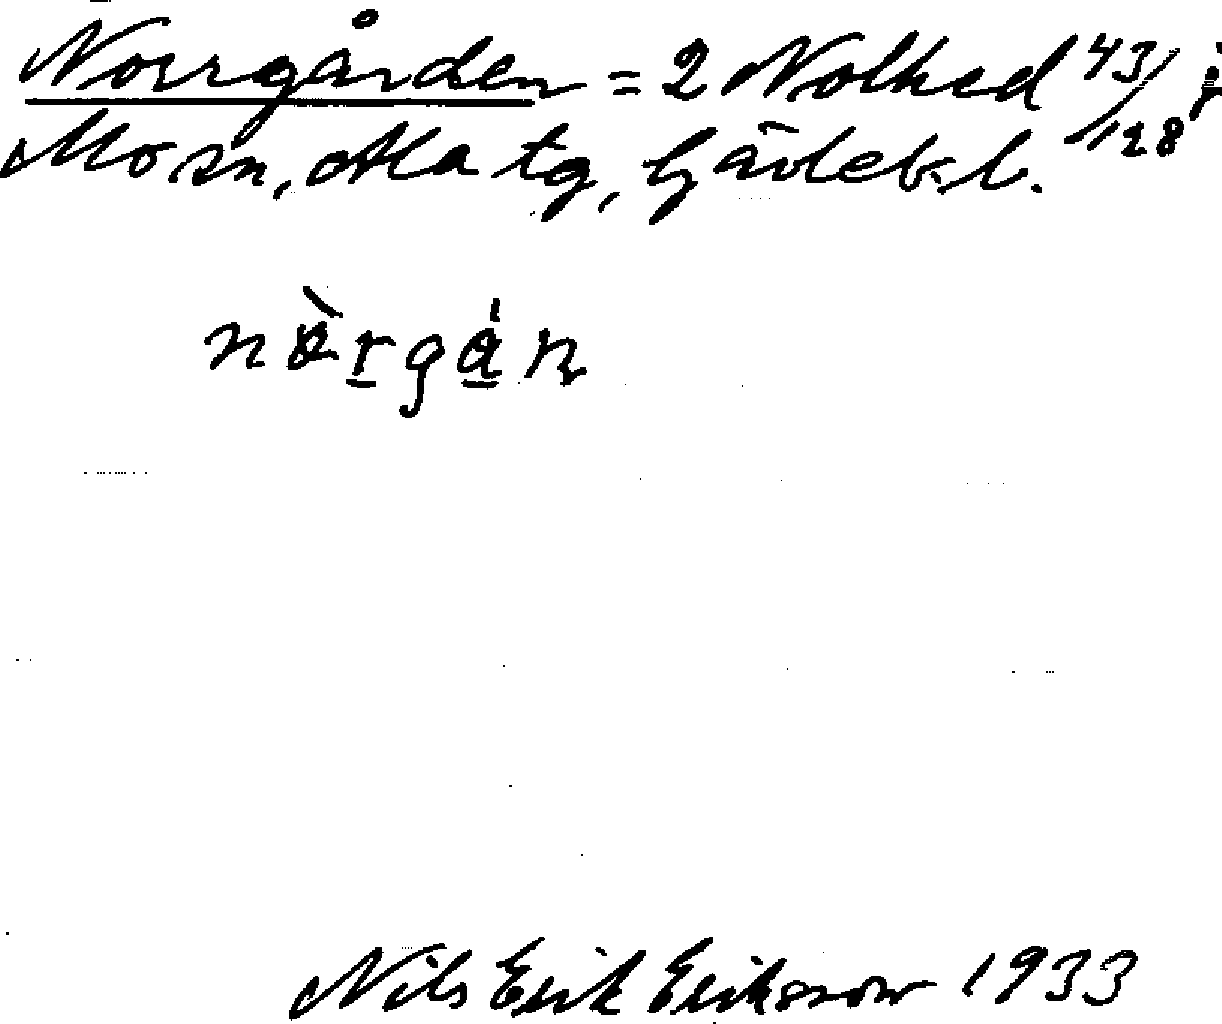 Norrgården = 2 Nolhed 43/128 i
Mosn, Ala tg, Gävlebl.
nòrgá̱n
Nils Erik Eriksson 1933